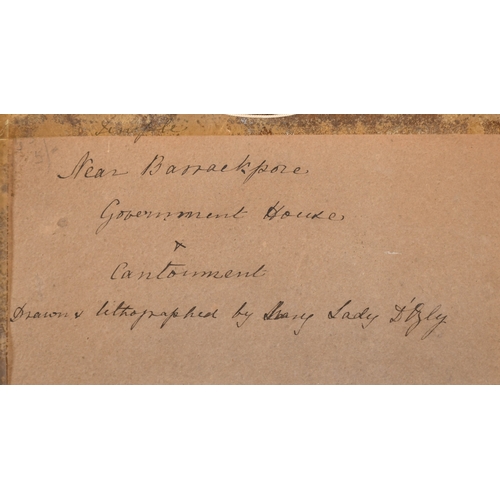 Near Barrackpore
Government House
&
Cantonment
Drawn & lithographed by Lady D'Oyly